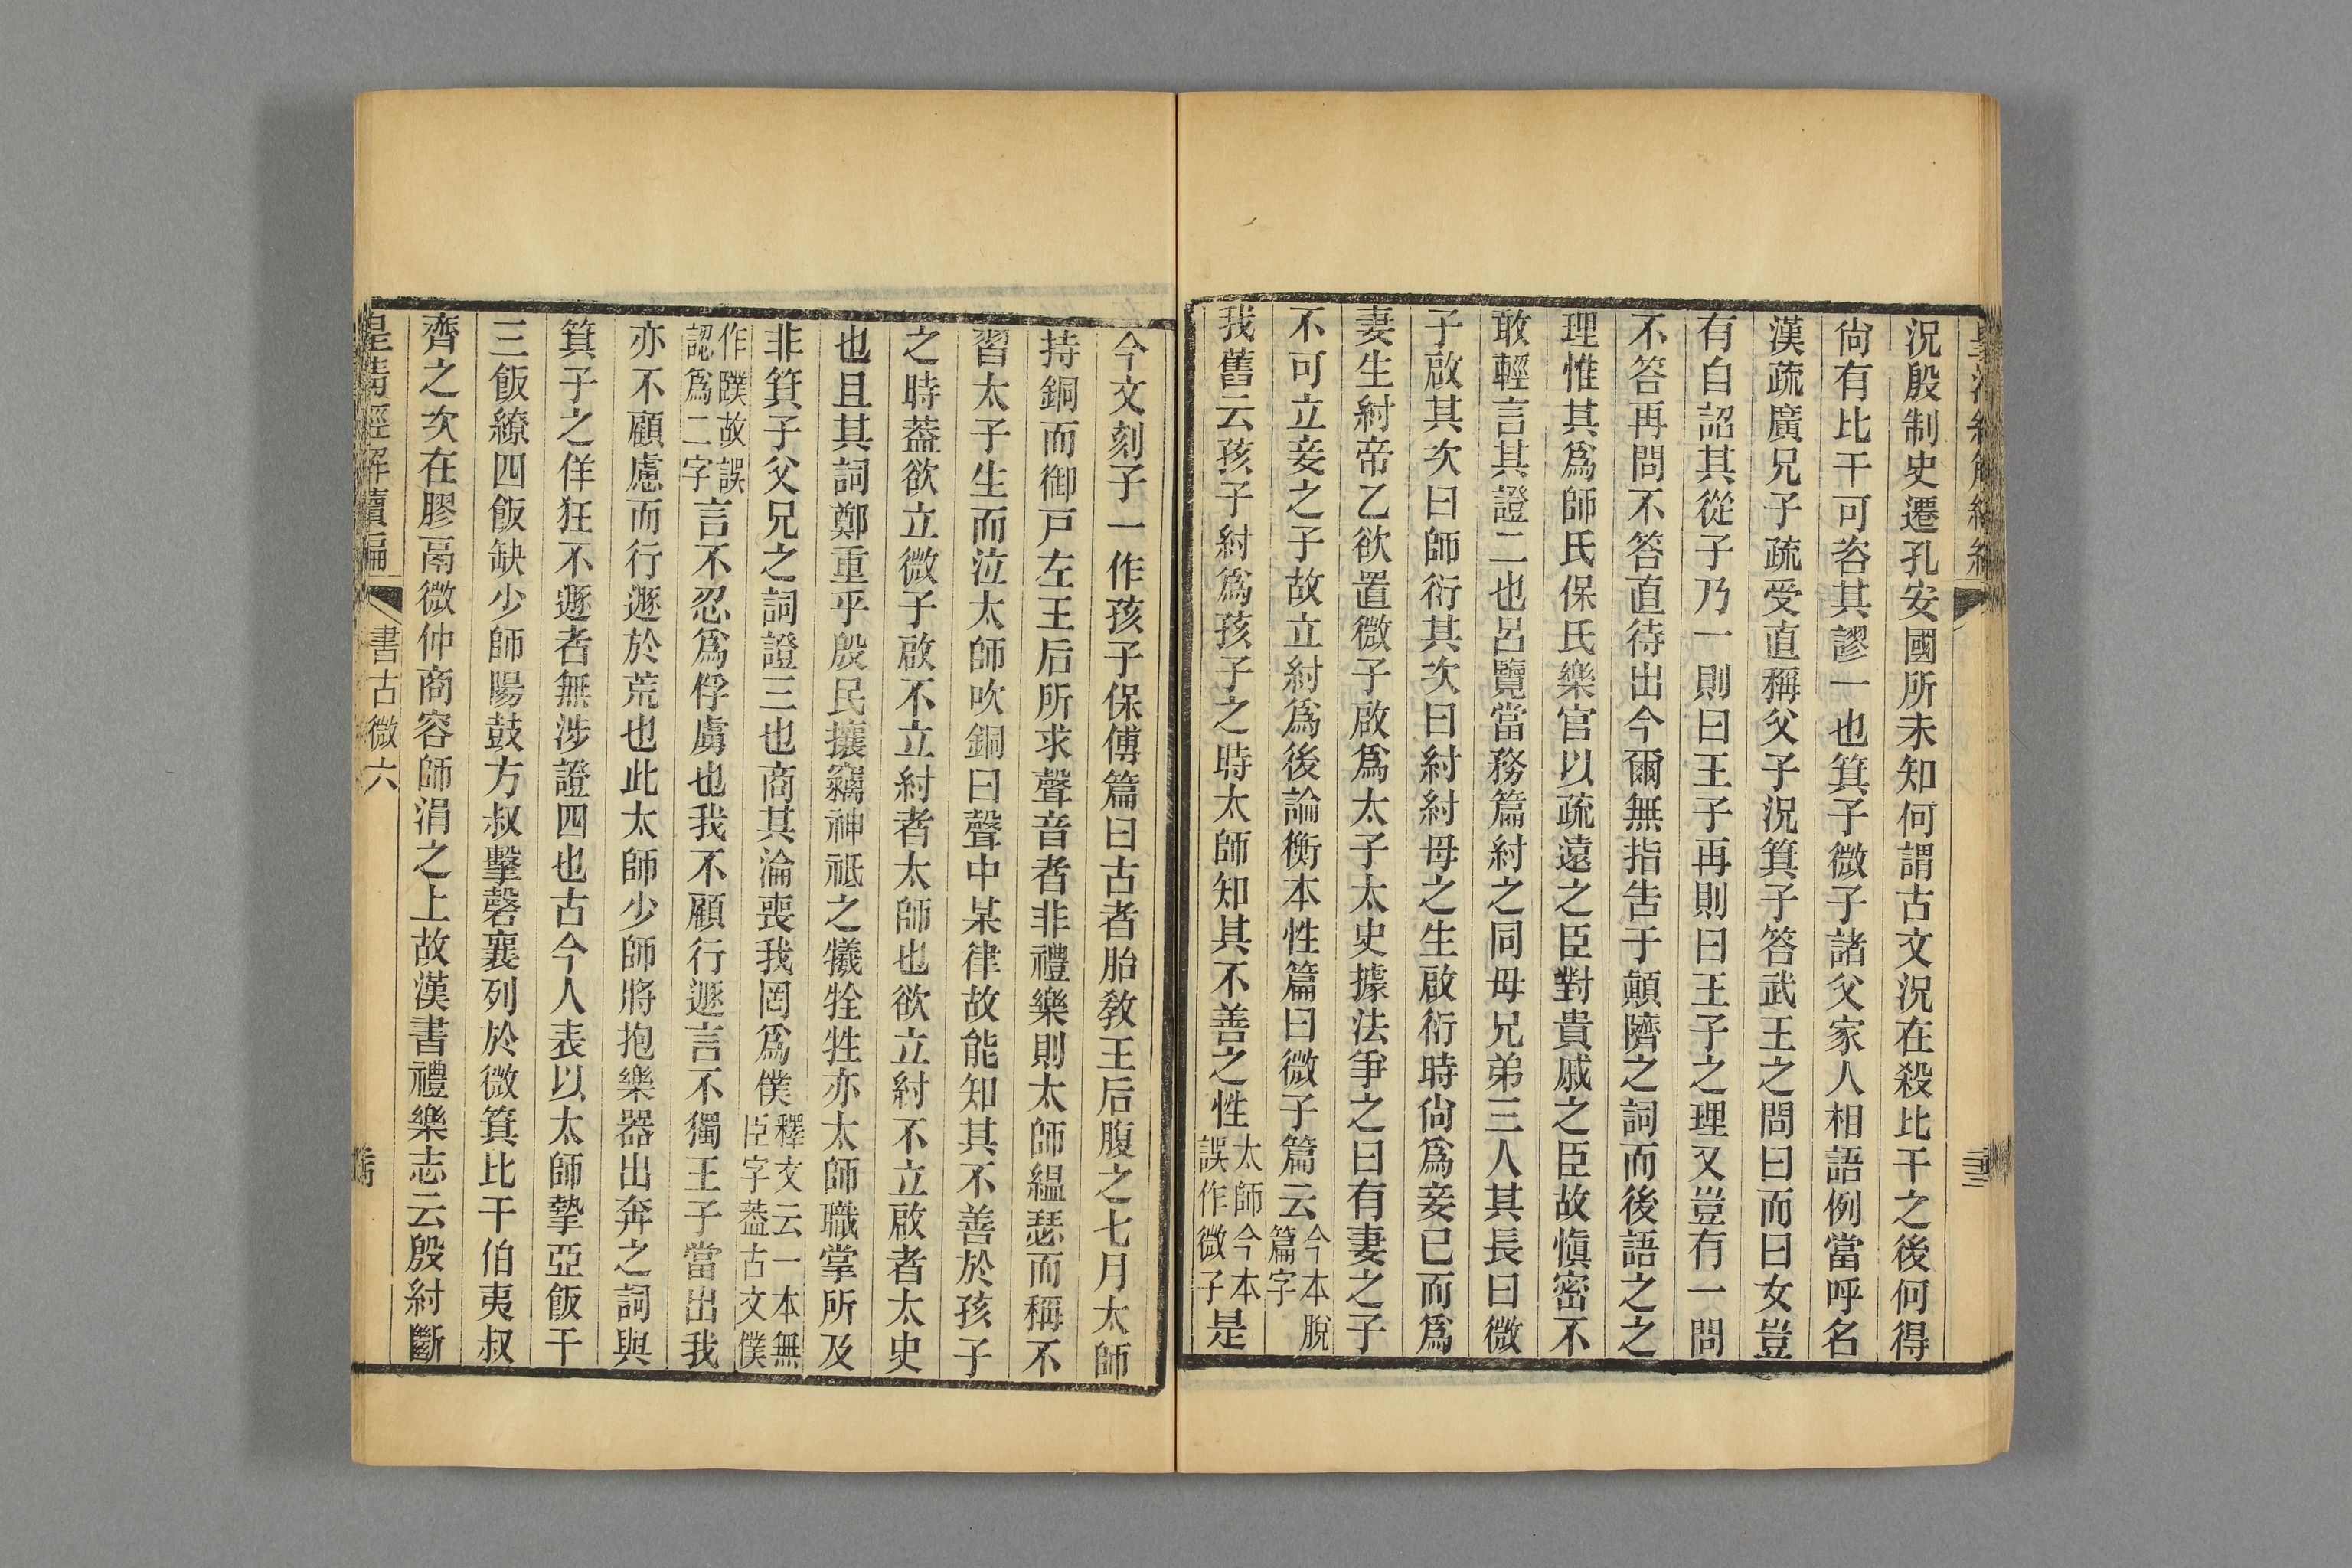 況殷制史遷孔安國所未知何謂古文況在殺比干之後何得
尙有比干可咨其謬一也箕子微子諸父家人相語例當呼名
漢疏廣兄子疏受直稱父子況箕子答武王之問曰而曰女豈
有自詔其從子乃一則曰王子再則曰王子之理又豈有一問
不答再問不答直待出今爾無指告于顚隮之詞而後語之之
理惟其爲師氏保氏樂官以疏遠之臣對貴戚之臣故愼密不
敢輕言其證二也呂覽當務篇紂之同母兄弟三人其長曰微
子啟其次曰師衍其次曰紂紂母之生啟衍時尙爲妾已而爲
妻生紂帝乙欲置微子啟爲太子太史據法爭之曰有妻之子
不可立妾之子故立紂爲後論衡本性篇曰微子篇云今本脫篇字
我舊云孩子紂爲孩子之時太師知其不善之性太師今本誤作微子是
今文刻子一作孩子保傅篇曰古者胎敎王后腹之七月太師
持銅而御戸左王后所求聲音者非禮樂則太師縕瑟而稱不
習太子生而泣太師吹銅曰聲中某律故能知其不善於孩子
之時葢欲立微子啟不立紂者太師也欲立紂不立啟者太史
也且其詞鄭重乎殷民攘竊神祗之犧牷牲亦太師職掌所及
非箕子父兄之詞證三也商其淪喪我罔爲僕釋文云一本無臣字葢古文僕
作䑑故誤認爲二字言不忍爲俘虜也我不顧行遯言不獨王子當出我
亦不顧慮而行遯於荒也此太師少師將抱樂器出奔之詞與
箕子之佯狂不遯者無涉證四也古今人表以太師摯亞飯干
三飯繚四飯缺少師陽鼓方叔擊磬襄列於微箕比干伯夷叔
齊之次在膠鬲微仲商容師涓之上故漢書禮樂志云殷紂斷
皇淸經解續編
書古微六